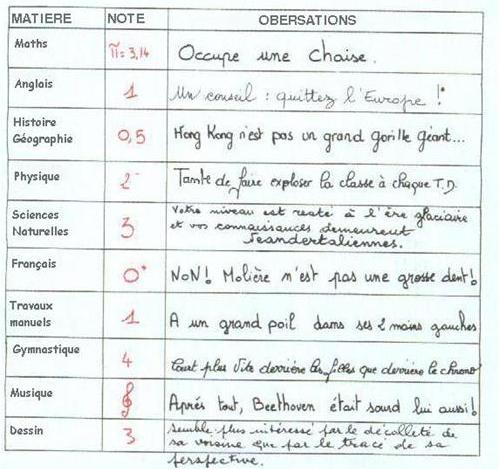 MATIERE NOTE OBERSATIONS
Maths π=3,14 Occupe une chaise.
Anglais 1 Un conseil : quittez l'Europe !
Histoire
Géographie 0,5 Hong Kong n'est pas un grand gorille géant...
Physique 2- Tente de faire exploser la classe à chaque T.D.
Sciences
Naturelles 3 Votre niveau est resté à l'ère glaciaire
et vos connaissances demeurent
Neandertaliennes.
Français 0+ NoN! Molière n'est pas une grosse dent!
Travaux
manuels 1 A un grand poil dans ses 2 mains gauches
Gymnastique 4 Court plus vite derrière les filles que derrière le chrono
Musique 𝄞 Après tout, Beethoven était sourd lui aussi!
Dessin 3 semble plus intéressé par le décolleté de
sa voisine que par le tracé de sa
perspective.